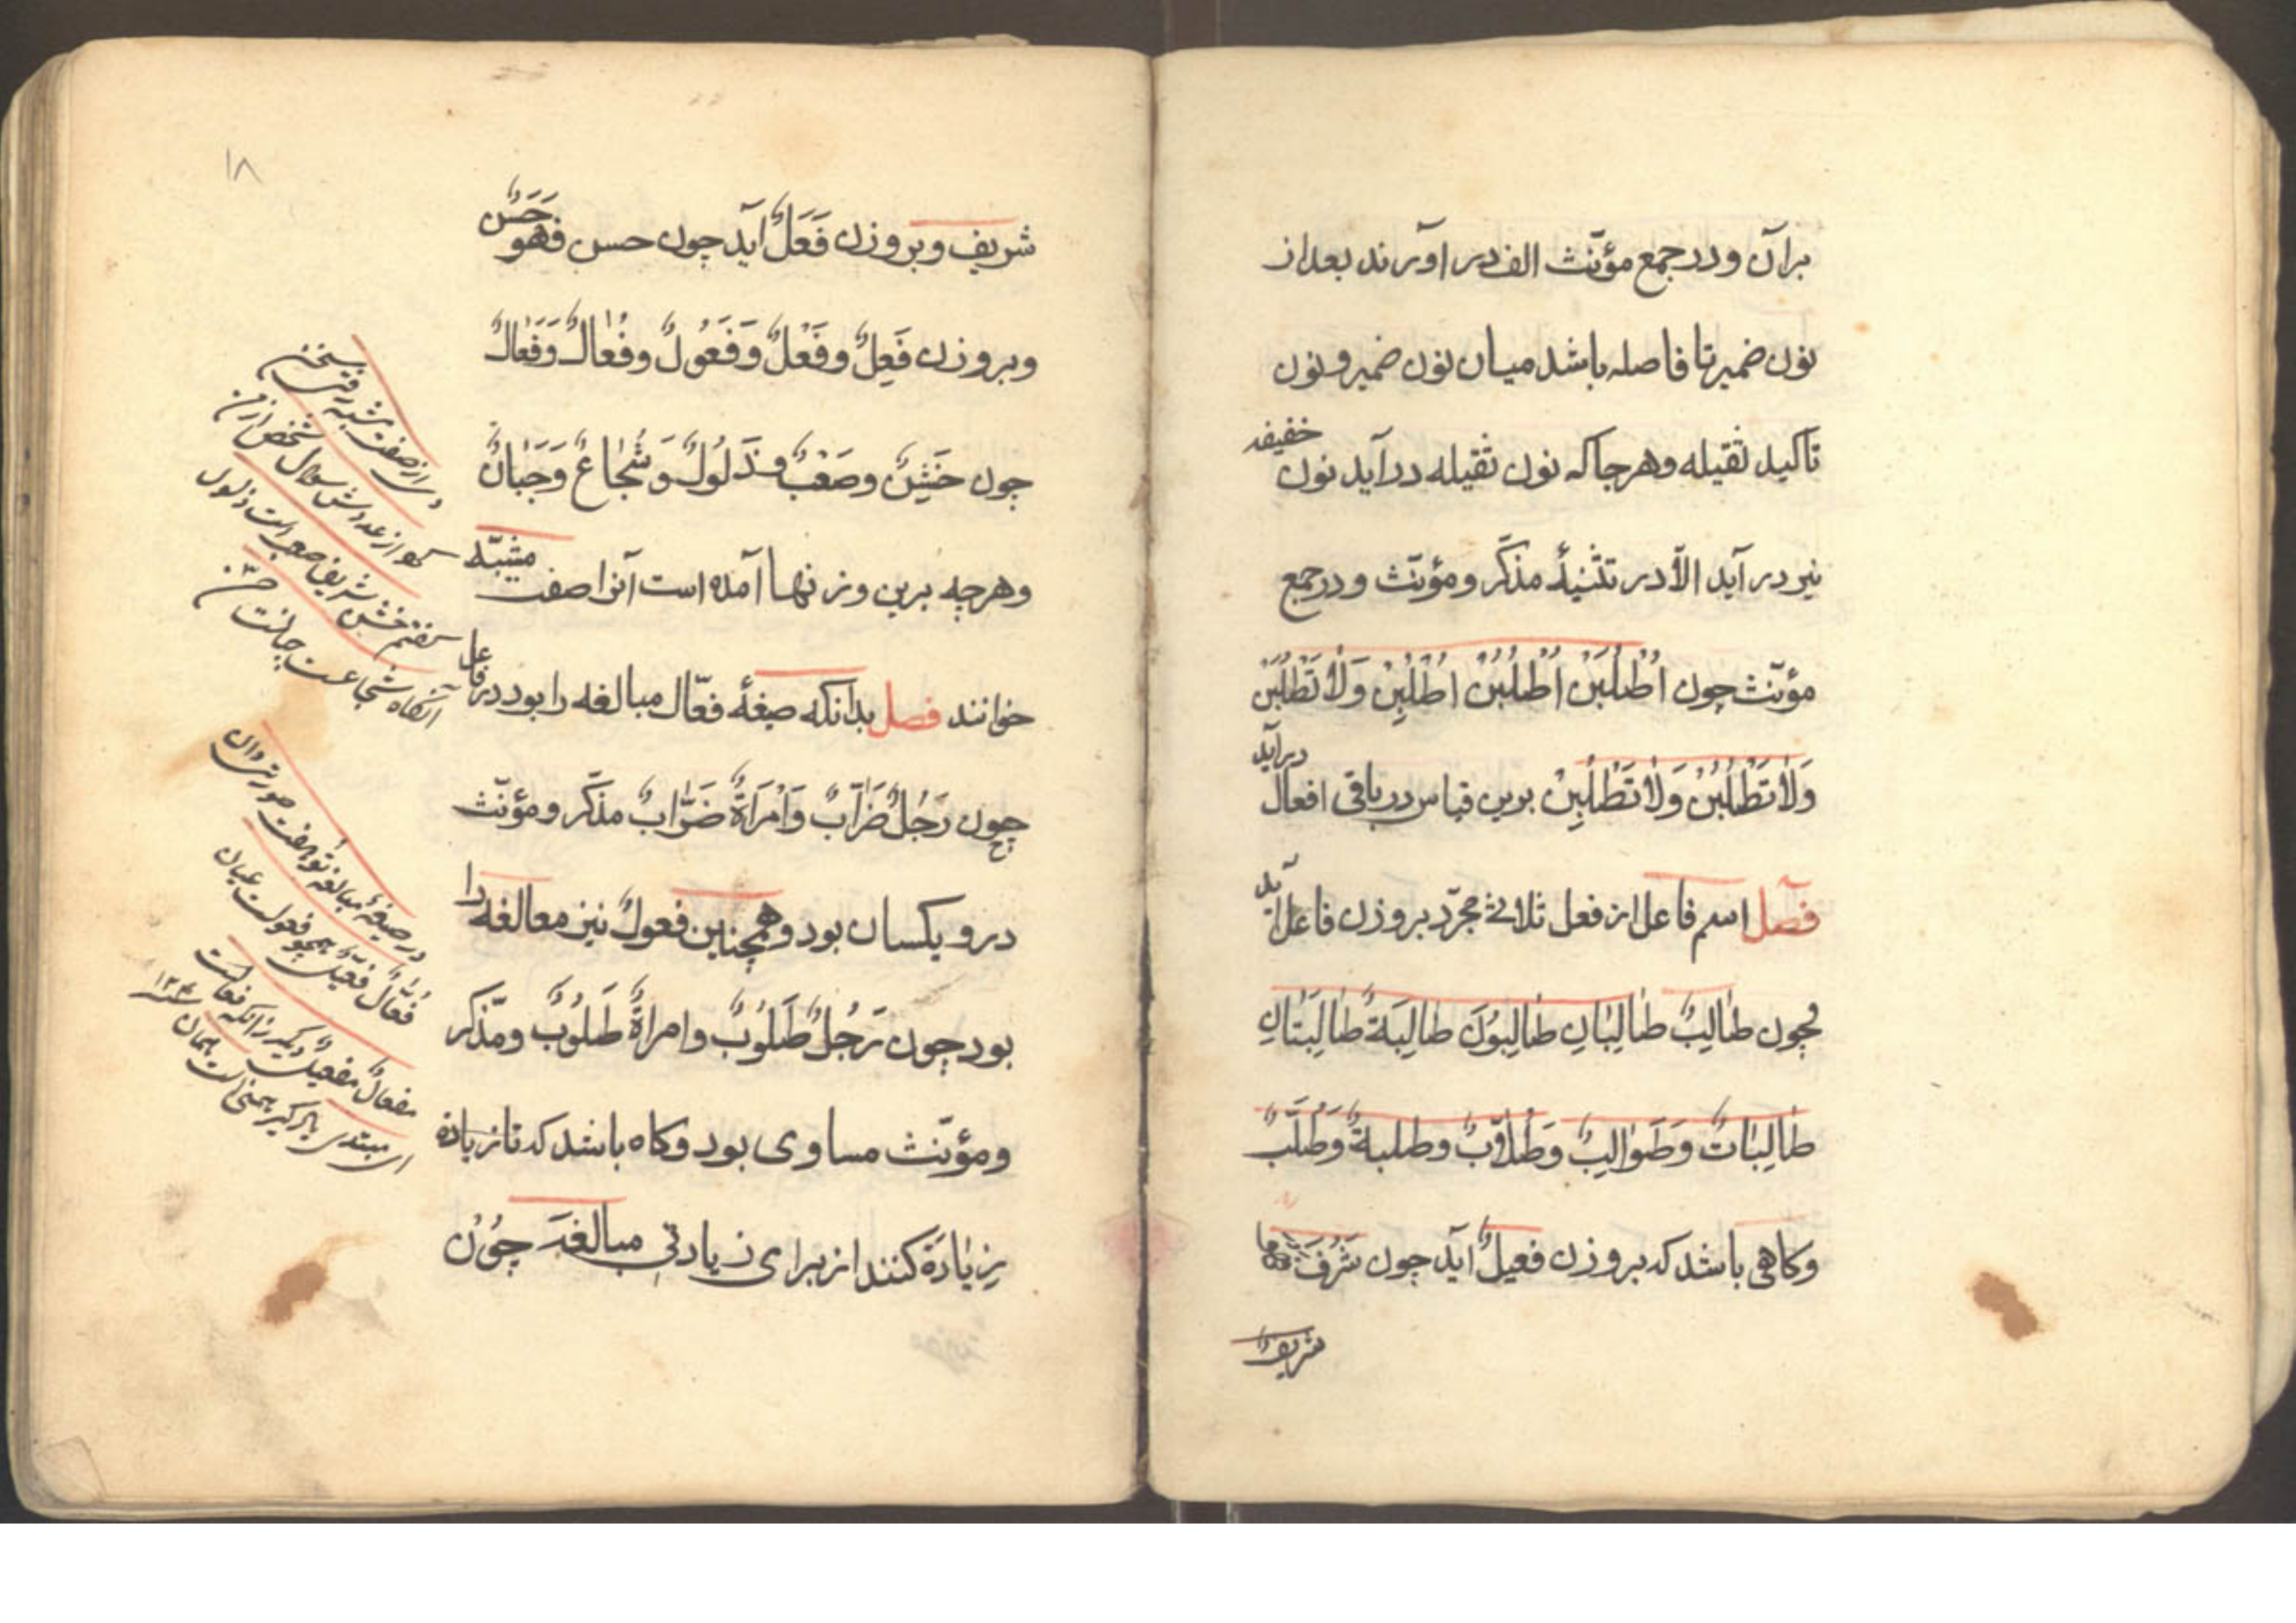 برآن ودر جمع مؤنّث الف در اورند بعد از
نون ضمیر تا فاصله باشد میان نون ضمیر و نون
تاکید ثقیله وهرجا که نون ثقیله درآید نون خفیفه
نیز در آید الاّ در تثنیهٔ مذکّر ومؤنّث ودر جمع
مؤنّث چون اُطْلُبَنْ اُطْلُبُنْ اُطْلُبِنْ وَلاٰ تَطْلُبَنْ
وَلاٰ تَطْلُبُنْ وَلاٰ تَطْلُبِنْ برین قیاس در باقی افعال درآید
فصل اسم فاعل از فعل ثلاثی مجرّد بر وزن فاعل آید
چون طٰالِبٌ طٰالِبٰانِ طٰالِبُونَ طٰالِبَةٌ طٰالِبَتٰانِ
طٰالِبٰاتٌ وَطَوٰالِبُ وَطُلاّبٌ وطلبةٌ وَطُلَّبٌ
وکاهی باشد که بر وزن فعیلٌ آید چون شَرُفَ
شریفٌ
۱۸
شریف وبر وزن فَعَلٌ آید چون حسن فهو حَسَنٌ
وبر وزن فَعِلٌ وفَعْلٌ وَفَعُولٌ وفُعٰالٌ وَفَعٰالٌ
چون خَشِنٌ وصَعْبٌ وذَلُولٌ وَشُجٰاعٌ وَجَبٰانٌ
وهرچه برین وزنها آمده است آنرا صفت مشبّهه
خوانند فصل بدانکه صیغهٔ فعّال مبالغه را بود در فاعل
چون رَجُلٌ ضَرّٰابٌ وَامْرَاَةٌ ضَرّٰابٌ مذکّر ومؤنّث
درو یکسان بود وهمچنین فعولٌ نیز معالغه را
بود چون رَجُلٌ طَلُوبٌ وامراةٌ طَلُوبٌ ومذّکر
ومؤنّث مساوی بود وکاه باشد که تا زیاده
زِیٰادَة کنند از برای زیادتی مبالغَه چُون
صفت مشبه رفتی
شخص از من
کفتم خشن شریف صعب است ذلول
آنکاه شجاعت جبانست حسن
در صیغهٔ مبالغه
فُعّالٌ فعّیلٌ همچو فعولست عیان
مفعالٌ مفعیلٌ دیکر زانکه فعالست
ای مبتدی یاد کیر